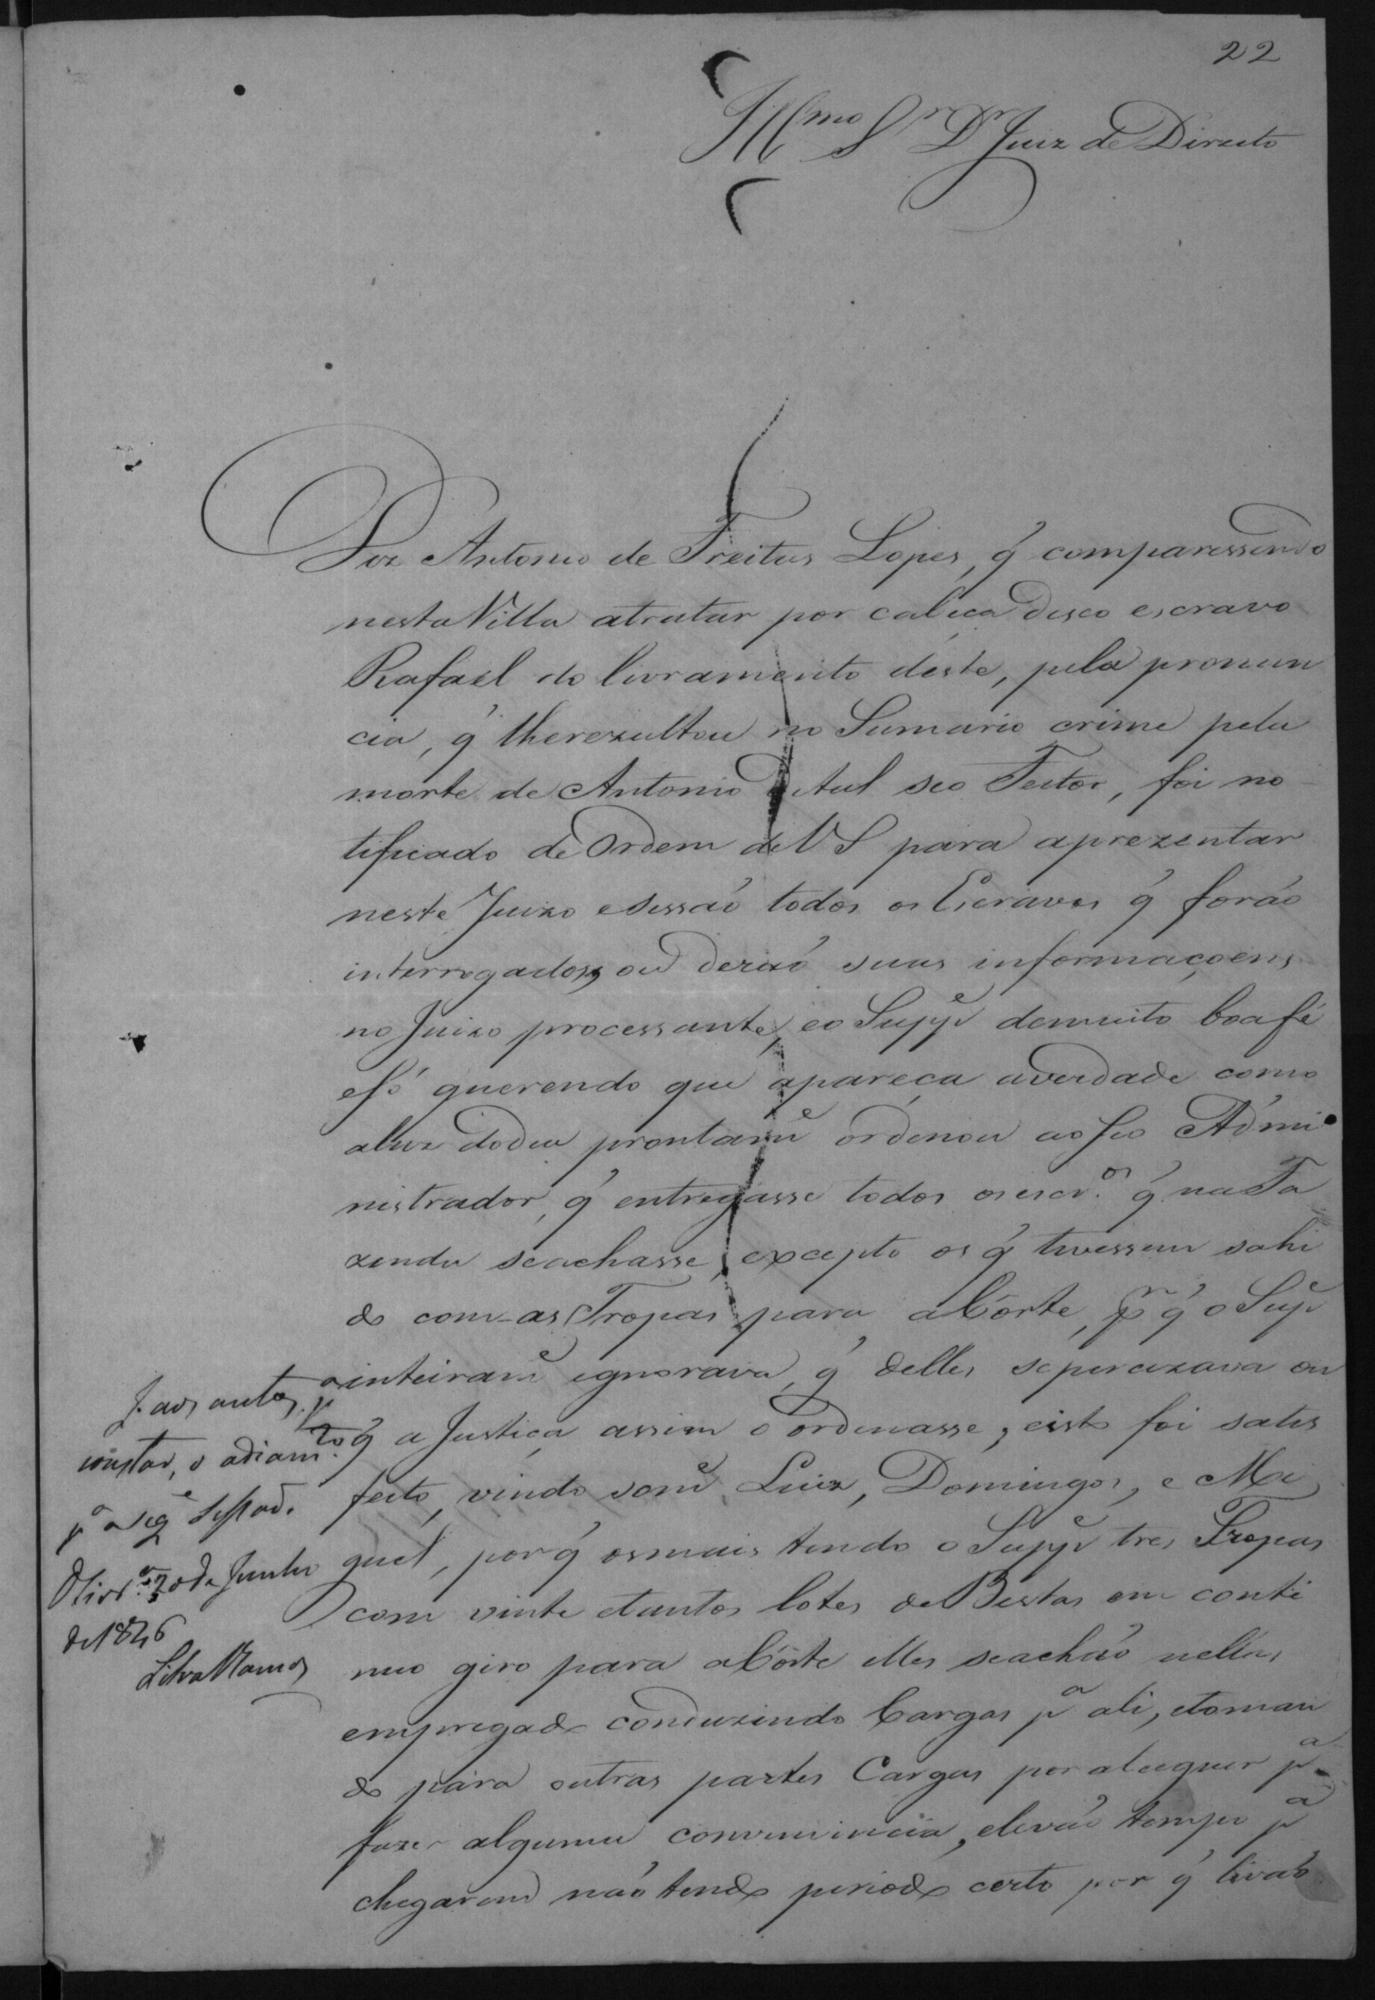 22
Illmo Sr Dr Juiz de Direito
Diz Antonio de Freitas Lopes, q' comparessendo
nesta Villa atratar por cabeça deseo escravo
Rafael do livramento deste, pela pronun
cia, q' lherezultou no Sumario crime pela
morte de Antonio seo Feitor, foi no
tificado de Ordem de V S para aprezentar
neste Juizo esessaõ todos os Escravos q' foraõ
interrogados, ou deraõ suas informaçoens
no Juizo processante, eo Suppe demuito boafé
eSó querendo que apareça averdade como
aluz dodia prontame ordenou ao Seo Admi
nistrador, q' entregasse todos osescros q' naFa
zenda seachasse, excepto os q' tivessem sahi
do com as Tropas para aCôrte, pr q' o Supe
inteirame ignorava, q' delles sepercizava ou
q' a Justiça assim o ordenasse, eisto foi satis
feito, vindo some Luiz, Domingos, e Mi
guel, porq' osmais tendo o Suppe tres Tropas
com vinte etantos lotes de Bestas em conti
nuo giro para aCôrte elles seachaõ nellas
empregado conduzindo Cargas pa ali, etoman
do para outras partes Cargas por aluguer pa
fazer alguma conveniencia, elevaõ tempo pa
chegarem naõ tendo periodo certo por q' tivaõ
J. aos autos pa
constar, o adiamto
pa a sege Sessaõ.
Olivra 20 de Junho
de 1846
Silva Ramos